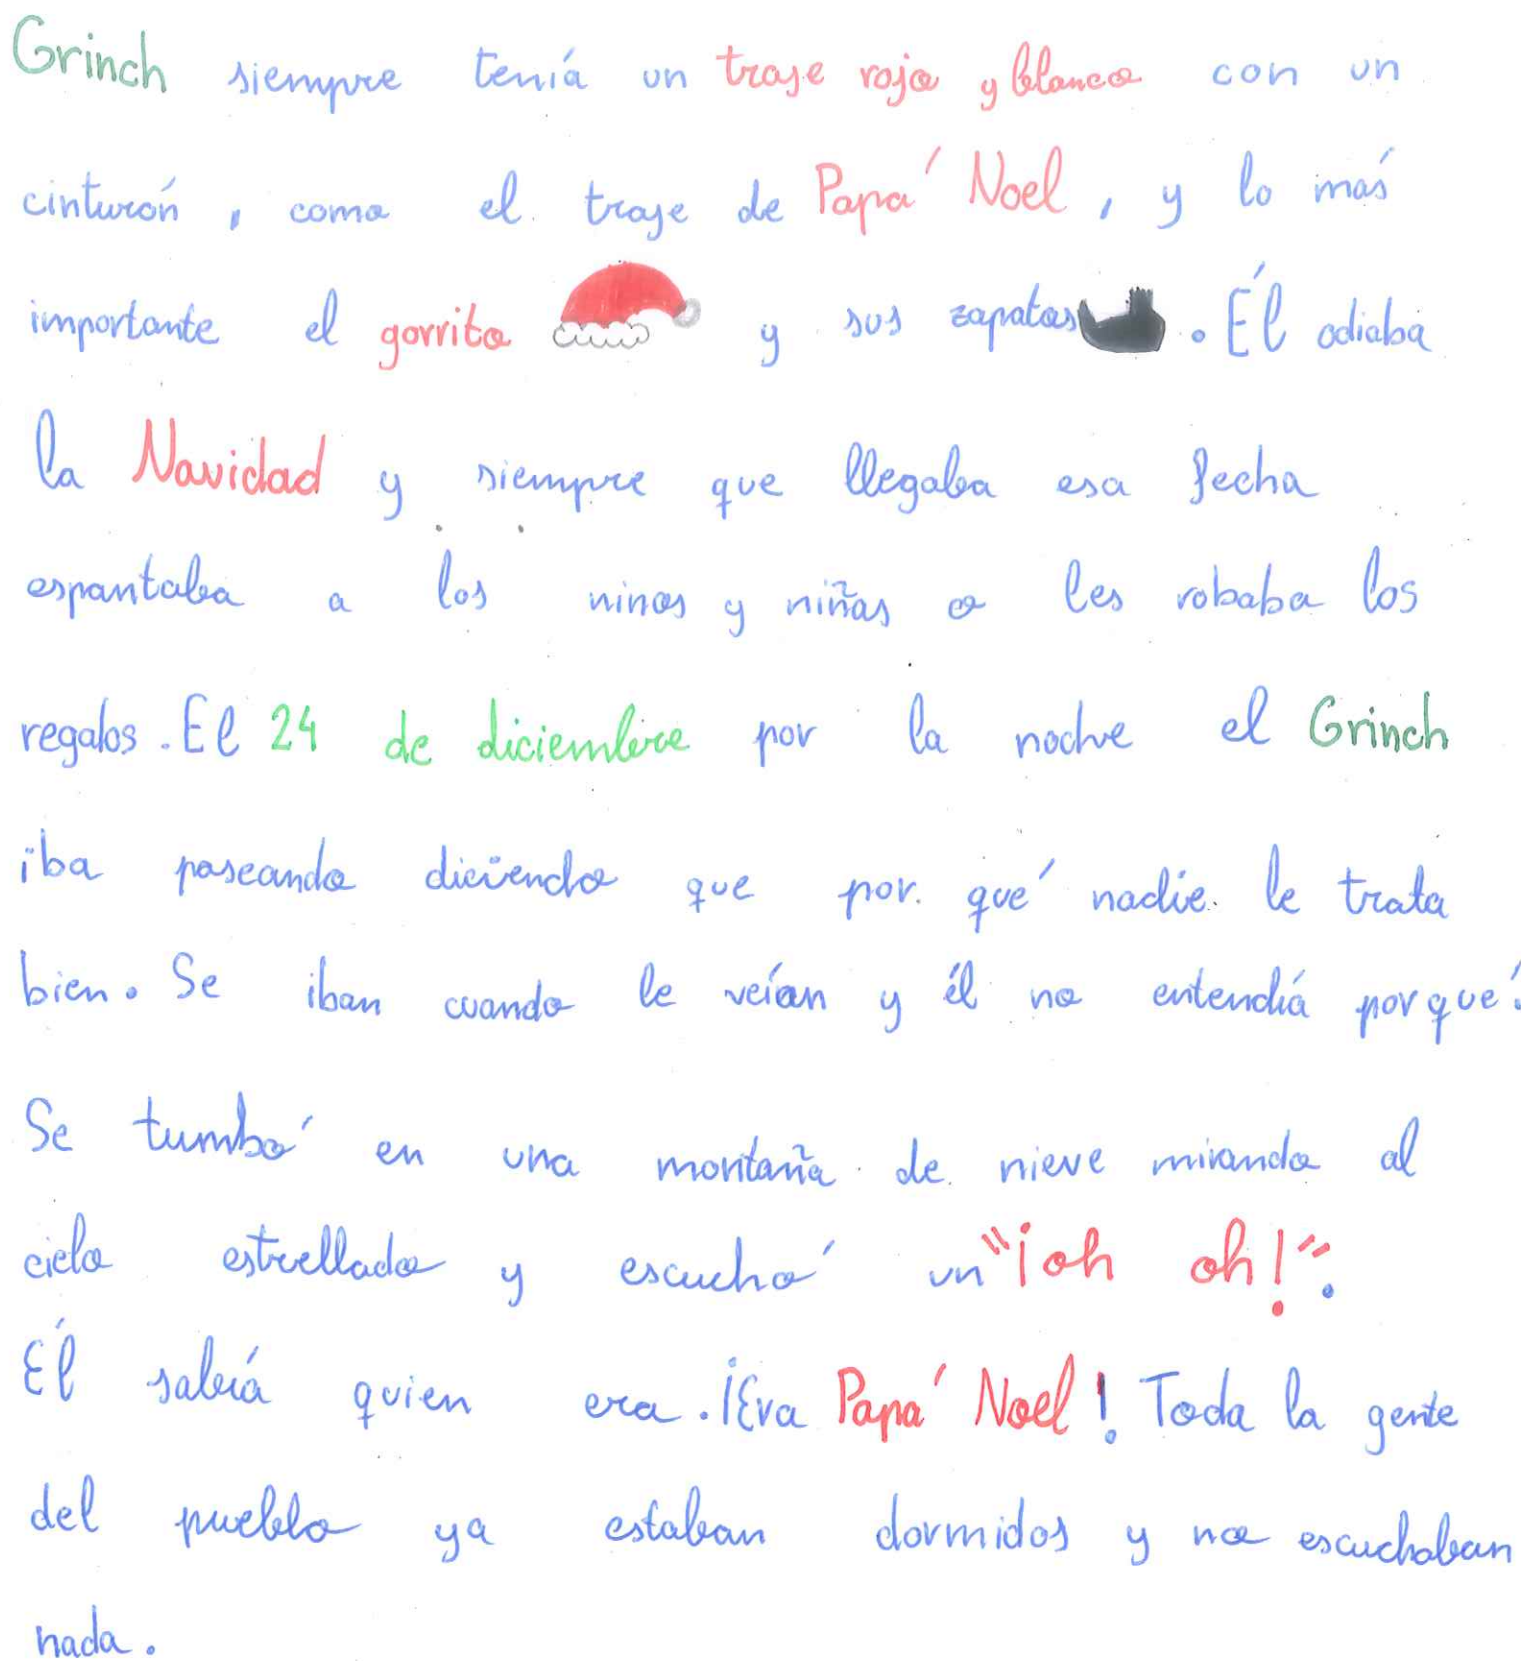 Grinch siempre tenía un traje rojo y blanco con un
cinturón, como el traje de Papá Noel, y lo más
importante el gorrito y sus zapatos. Él odiaba
la Navidad y siempre que llegaba esa fecha
espantaba a los ninos y niñas o les robaba los
regalos. El 24 de diciembre por la noche el Grinch
iba paseando diciendo que por qué nadie le trata
bien. Se iban cuando le veían y él no entendía porqué.
Se tumbó en una montaña de nieve mirando al
cielo estrellado y escuchó un "¡oh oh!".
Él sabía quien era. ¡Era Papá Noel! Toda la gente
del pueblo ya estaban dormidos y no escuchaban
nada.